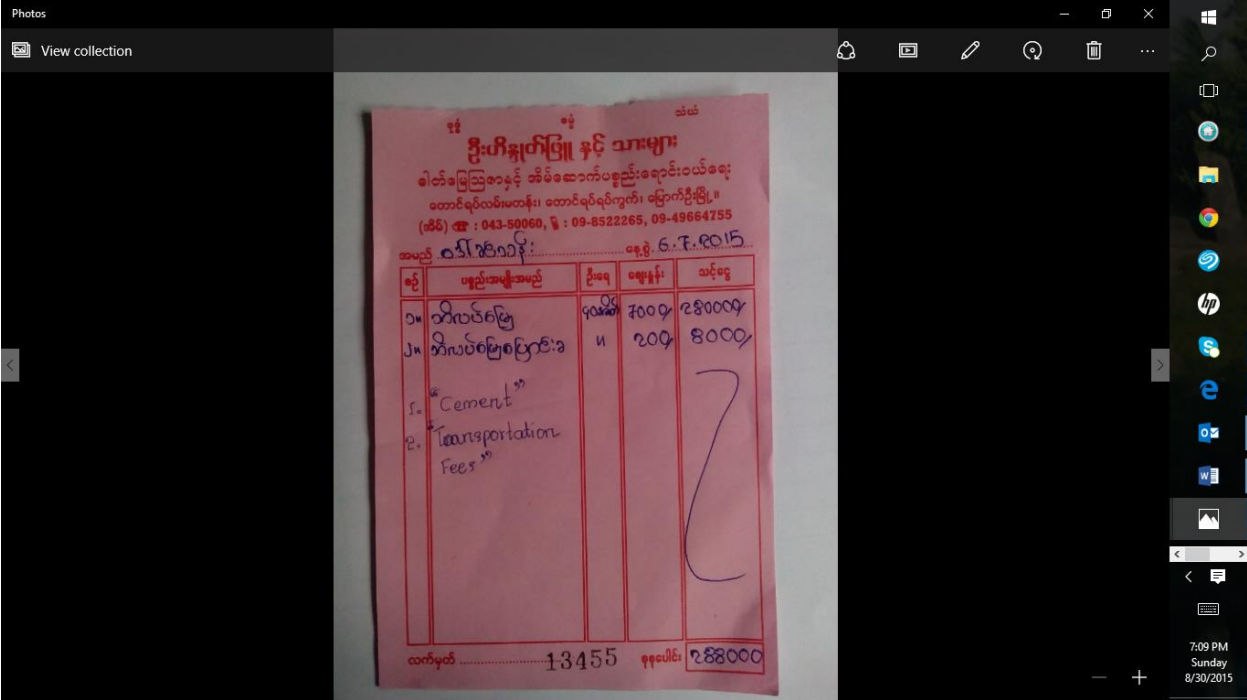 Photos
View collection
ဦးဟိန္ဒုတ်ဖြူ နှင့် သားများ
ဓါတ်မြေဩဇာနှင့် အိမ်ဆောက်ပစ္စည်းရောင်းဝယ်ရေး
တောင်ရပ်လမ်းမတန်း၊ တောင်ရပ်ရပ်ကွက်၊ မြောက်ဦးမြို့။
(အိမ်) ☎ : 043-50060, : 09-8522265, 09-49664755
အမည် နေ့စွဲ 6.7.2015
စဉ် ပစ္စည်းအမျိုးအမည် ဦးရေ ဈေးနှုန်း သင့်ငွေ
၁။ ဘိလပ်မြေ 7000/ 280000/
၂။ ဘိလပ်မြေပြောင်းခ " 200/ 8000/
1. "Cement"
2. "Transportation
Fees"
လက်မှတ် 13455 စုစုပေါင်း 288000
7:09 PM
Sunday
8/30/2015